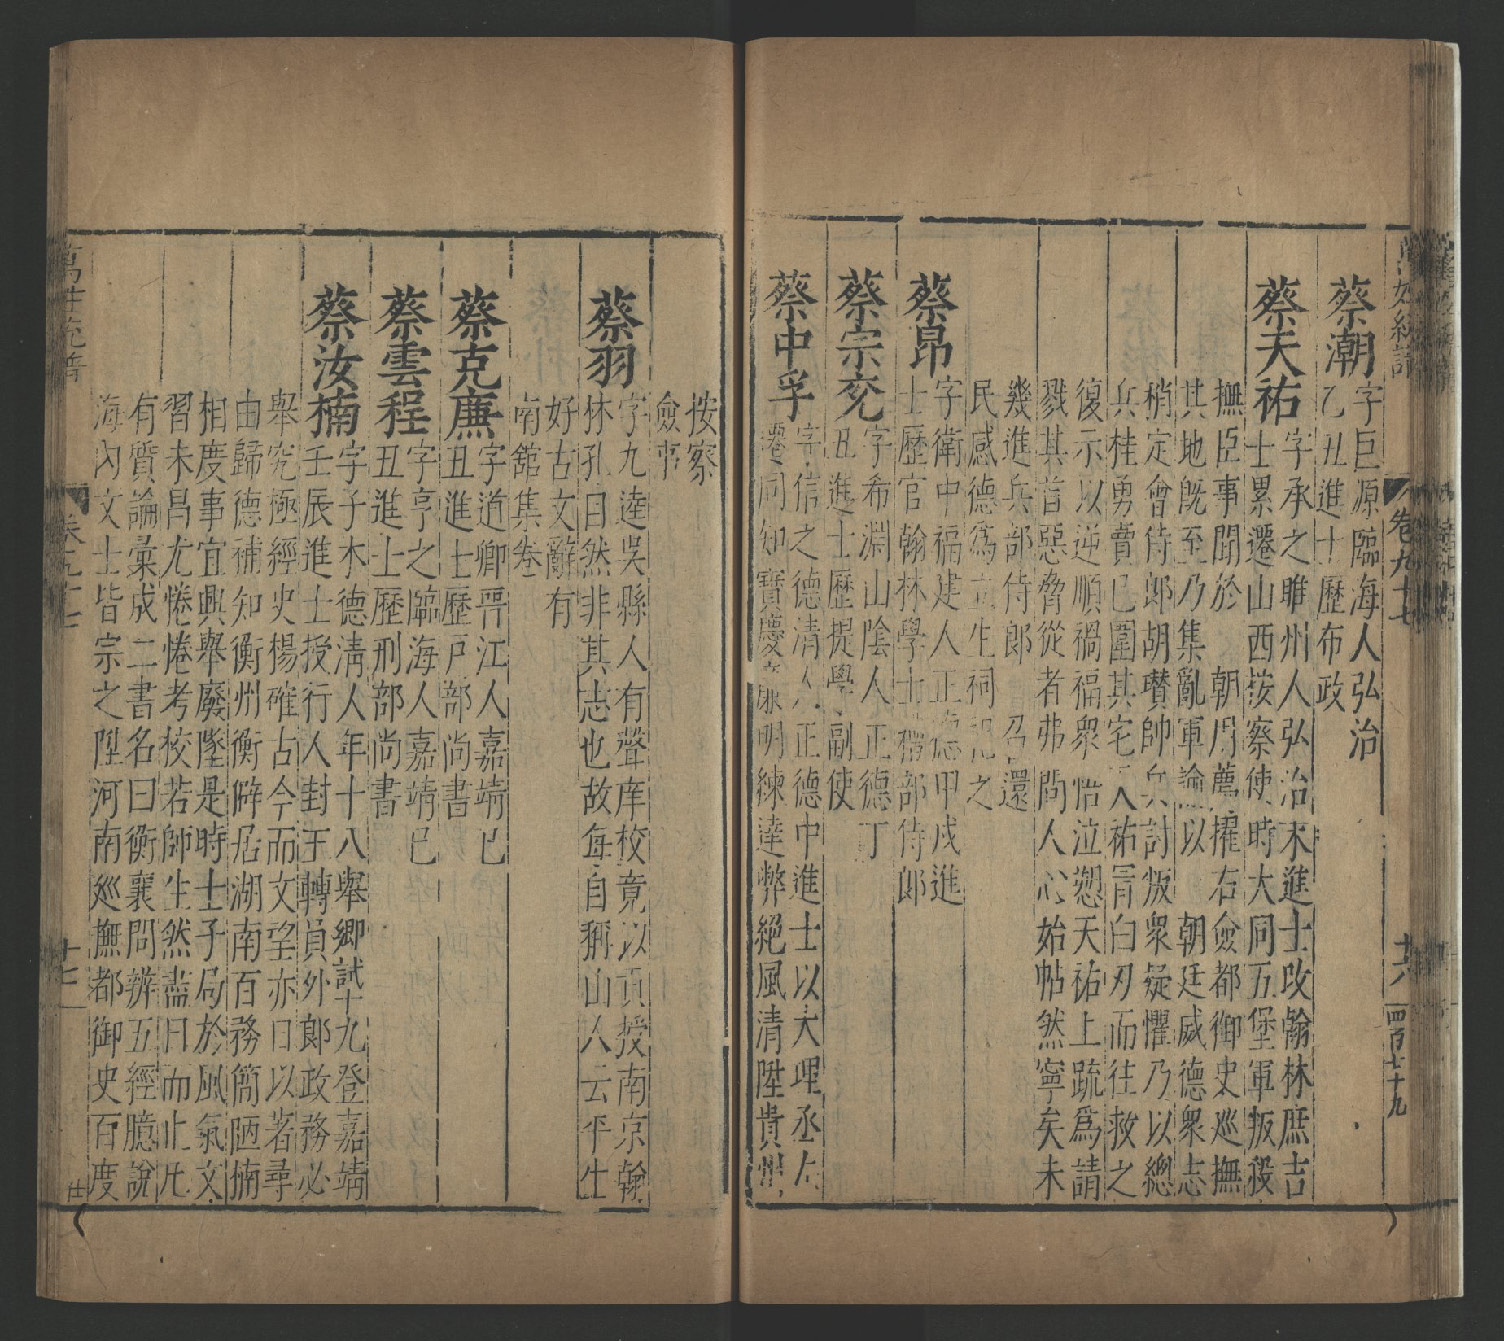 卷九十七
十六
四百七十九
蔡潮字巨源臨海人弘治
乙丑進士歷布政
蔡天祐字承之睢州人弘治末進士改翰林庶吉
士累遷山西按察使時大同五堡軍叛殺
撫臣事聞於朝用薦擢右僉都御史廵撫
其地旣至乃集亂軍諭以朝廷威德衆志
稍定會侍郎胡瓚帥兵討叛衆疑懼乃以總
兵桂勇賣已圍其宅天祐冒白刃而往救之
復示以逆順禍福衆悟泣愬天祐上疏爲請
戮其首惡脅從者弗問人心始帖然寧矣未
幾進兵部侍郎召還
民感德爲立生祠祀之
蔡昂字衛中福建人正德甲戌進
士歷官翰林學士禮部侍郎
蔡宗兖字希淵山陰人正德丁
丑進士歷提學副使
蔡中孚字信之德清人正德中進士以大理丞左
遷同知寶慶廉明練達弊絕風清陞貴州
按察
僉事
蔡羽字九逵吳縣人有聲庠校竟以貢授南京翰
林孔目然非其志也故每自稱山人云平生
好古文辭有
南舘集卷
蔡克廉字道卿晉江人嘉靖己
丑進士歷戸部尚書
蔡雲程字亨之臨海人嘉靖己
丑進士歷刑部尚書
蔡汝楠字子木德淸人年十八舉鄉試十九登嘉靖
壬辰進士授行人封王轉員外郎政務必
舉究極經史楊確古今而文望亦日以著尋
由歸德補知衡州衡僻居湖南百務簡陋楠
相度事宜興舉廢墜是時士子局於風氣文
習未昌尤惓惓考校若師生然盖日而止凡
有質論彙成二書名曰衡襄問辨五經臆說
海內文士皆宗之陞河南廵撫都御史百度
萬姓統譜
卷九十七
十七